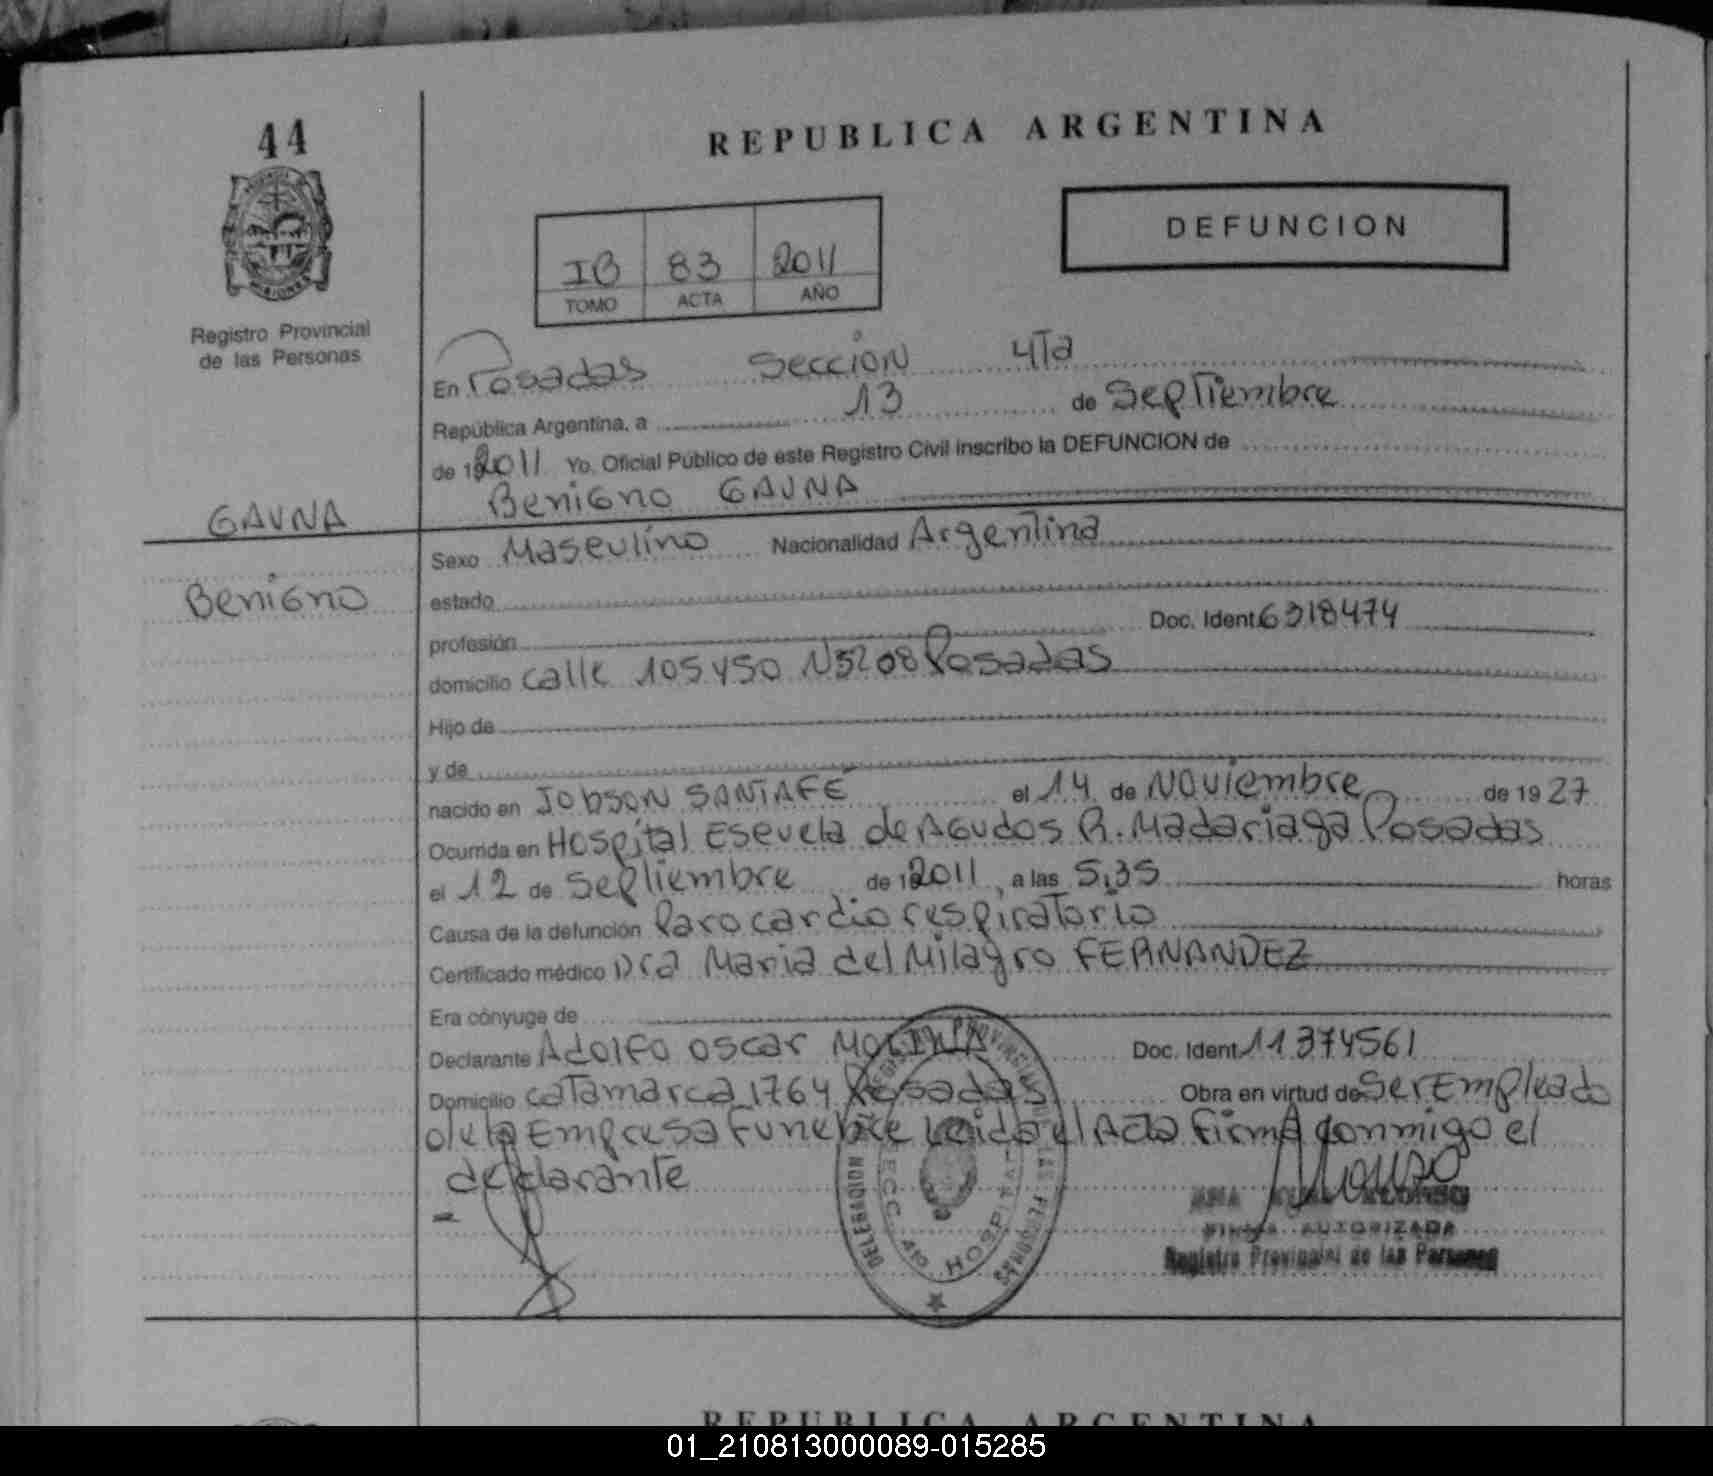 44
REPUBLICA ARGENTINA
DEFUNCION
IB 83 2011
TOMO ACTA AÑO
Registro Provincial
de las Personas
En Posadas Seccion 4Ta
República Argentina, a 13 de Septiembre
de 192011 Yo, Oficial Público de este Registro Civil inscribo la DEFUNCION de
Benigno GAUNA
GAUNA
Benigno
Sexo Masculino Nacionalidad Argentina
estado
profesión Doc. Ident. 6318474
domicilio Calle 105 y 50 N5208 Posadas
Hijo de
y de
nacido en Jobson SANTAFÉ el 14 de Noviembre de 1927
Ocurrida en Hospital Escuela de Agudos R. Madariaga Posadas
el 12 de Septiembre de 192011, a las 5,35 horas
Causa de la defunción Paro cardio respiratorio
Certificado médico Dra Maria del Milagro FERNANDEZ
Era cónyuge de
Declarante Adolfo Oscar MOLINA Doc. Ident. 11374561
Domicilio Catamarca 1764 Posadas Obra en virtud de Ser Empleado
de la Empresa Funebre Leida el Acta firma conmigo el
declarante
DELEGACION REGISTRO PROVINCIAL DE LAS PERSONAS
SECC. 4ta HOSPITAL
FIRMA AUTORIZADA
Registro Provincial de las Personas
REPUBLICA ARGENTINA
01_210813000089-015285